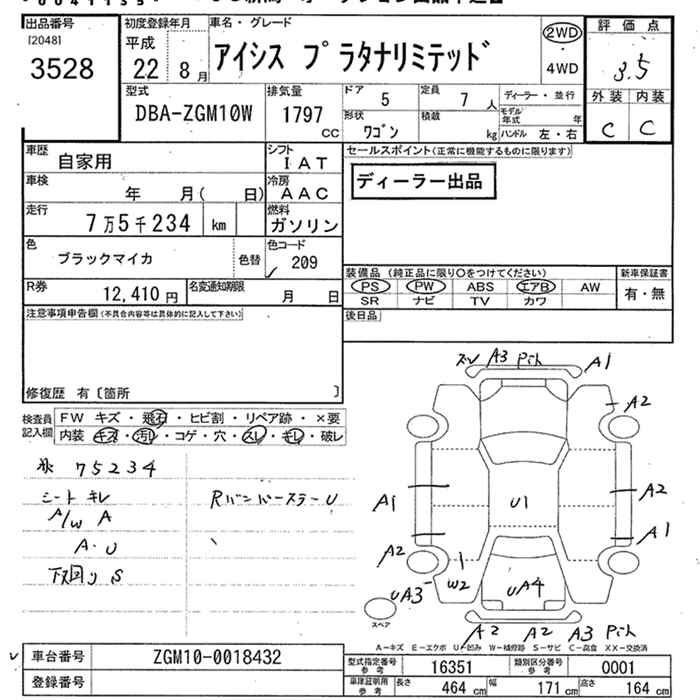 出品番号
[2048]
3528
初度登録年月
平成
22 8月
車名・グレード
アイシス プラタナリミテッド
2WD
・
4WD
評価点
3.5
外装 内装
C C
型式
DBA-ZGM10W
排気量
1797
CC
ドア
5
定員
7人
形状
ワゴン
積載
kg
ディーラー・並行
モデル年式 年
ハンドル 左・右
車歴
自家用
シフト
IAT
車検
年 月( 日)
冷房
AAC
走行
7万5千234 km
燃料
ガソリン
色
ブラックマイカ
色替
色コード
209
R券
12,410円
名変通知期限
月 日
セールスポイント(正常に機能するものに限ります)
ディーラー出品
装備品 (純正品に限り○をつけてください)
PS PW ABS エアB AW
SR ナビ TV カワ
新車保証書
有・無
後日品
注意事項申告欄(不具合内容等は具体的に記入して下さい)
修復歴 有〔箇所 〕
検査員
記入欄
FW キズ・飛石・ヒビ割・リペア跡・×要
内装 キズ・汚レ・コゲ・穴・スレ・キレ・破レ
75234
シート キレ
A/W A
A・U
下廻り S
Rバンパーステラー U
ズレ A3 Pit A1
A2
A1
U1
A2
A1
A2
W2
UA3
UA4
A2 A2 A3 Pit
スペア
A-キズ E-エクボ U-凹み W-補修跡 S-サビ C-腐食 XX-交換済
車台番号
ZGM10-0018432
登録番号
型式指定番号
参考
16351
類別区分番号
参考
0001
車庫証明用
参考
長さ 464cm 幅 171cm 高さ 164cm